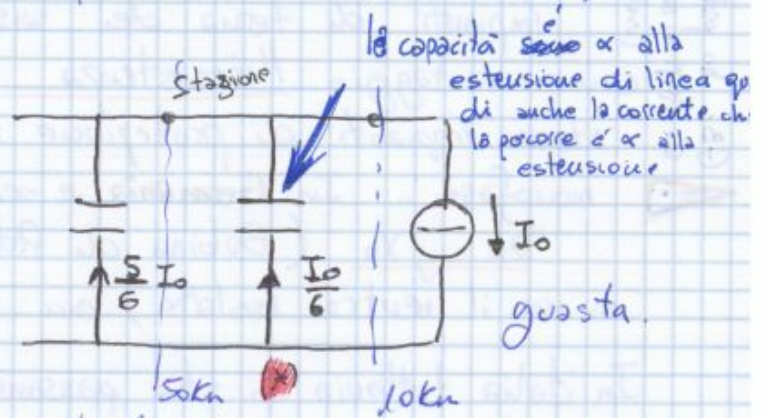 la capacità è ∝ alla
estensione di linea qu
di anche la corrente ch
la percorre é ∝ alla
estensione
Stazione
5/6 I₀
I₀/6
I₀
guasta.
50Km
10Km